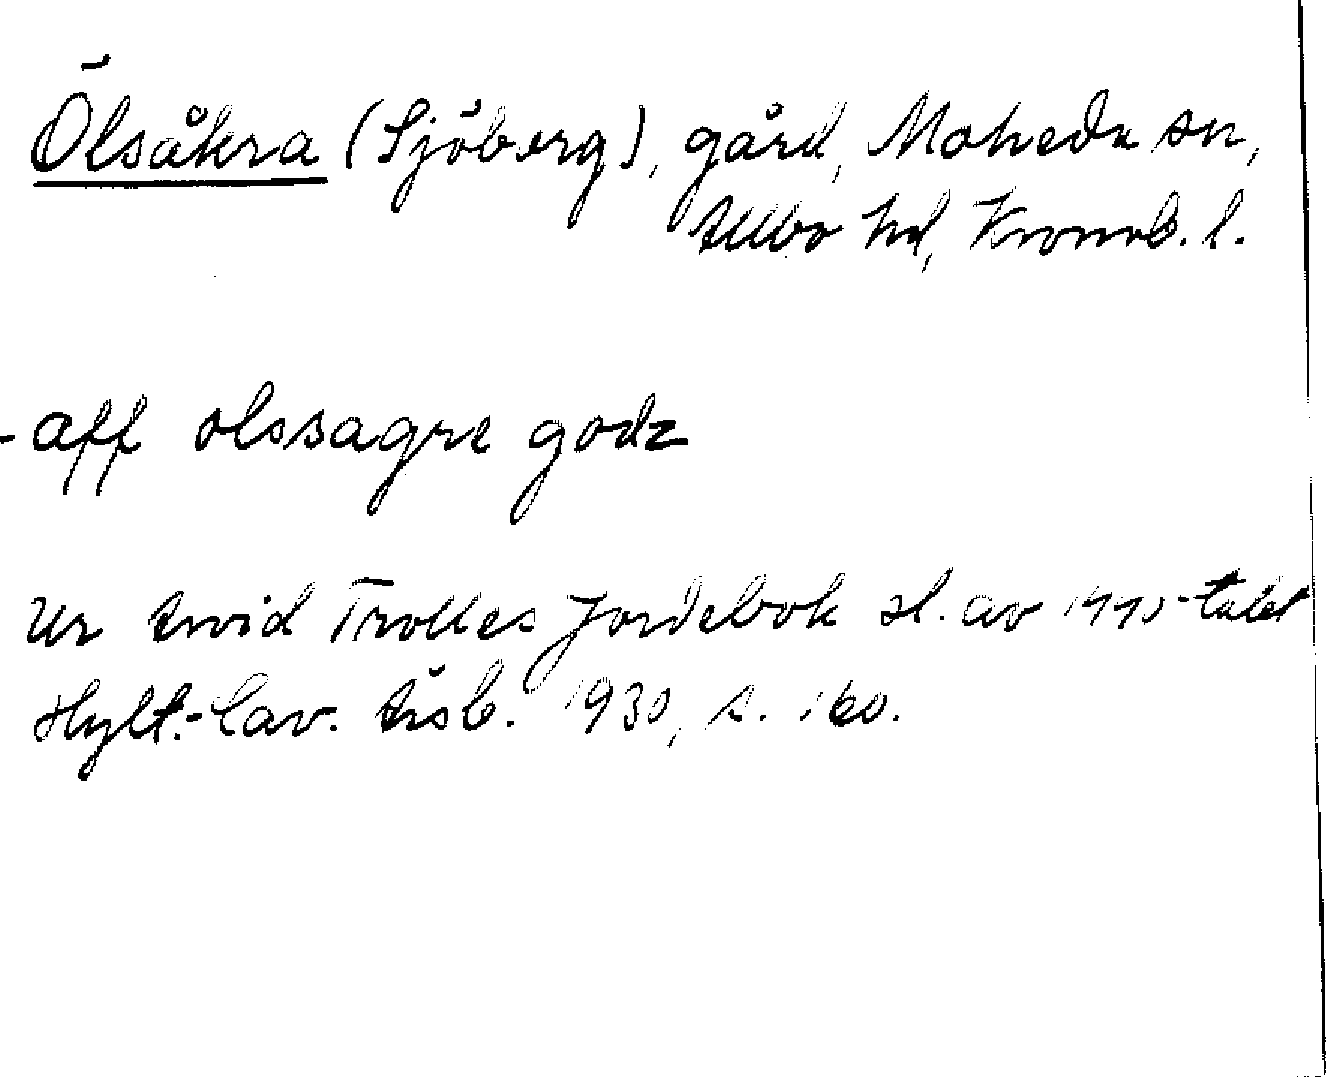 Ölsåkra (Sjöberg), gård, Moheda sn,
Allbo hd, Kronob. l.
- aff olssagre godz
Ur Arvid Trolles Jordebok sl. av 1470-talet
Hylt.-Cav. Årsb. 1930, s. 160.